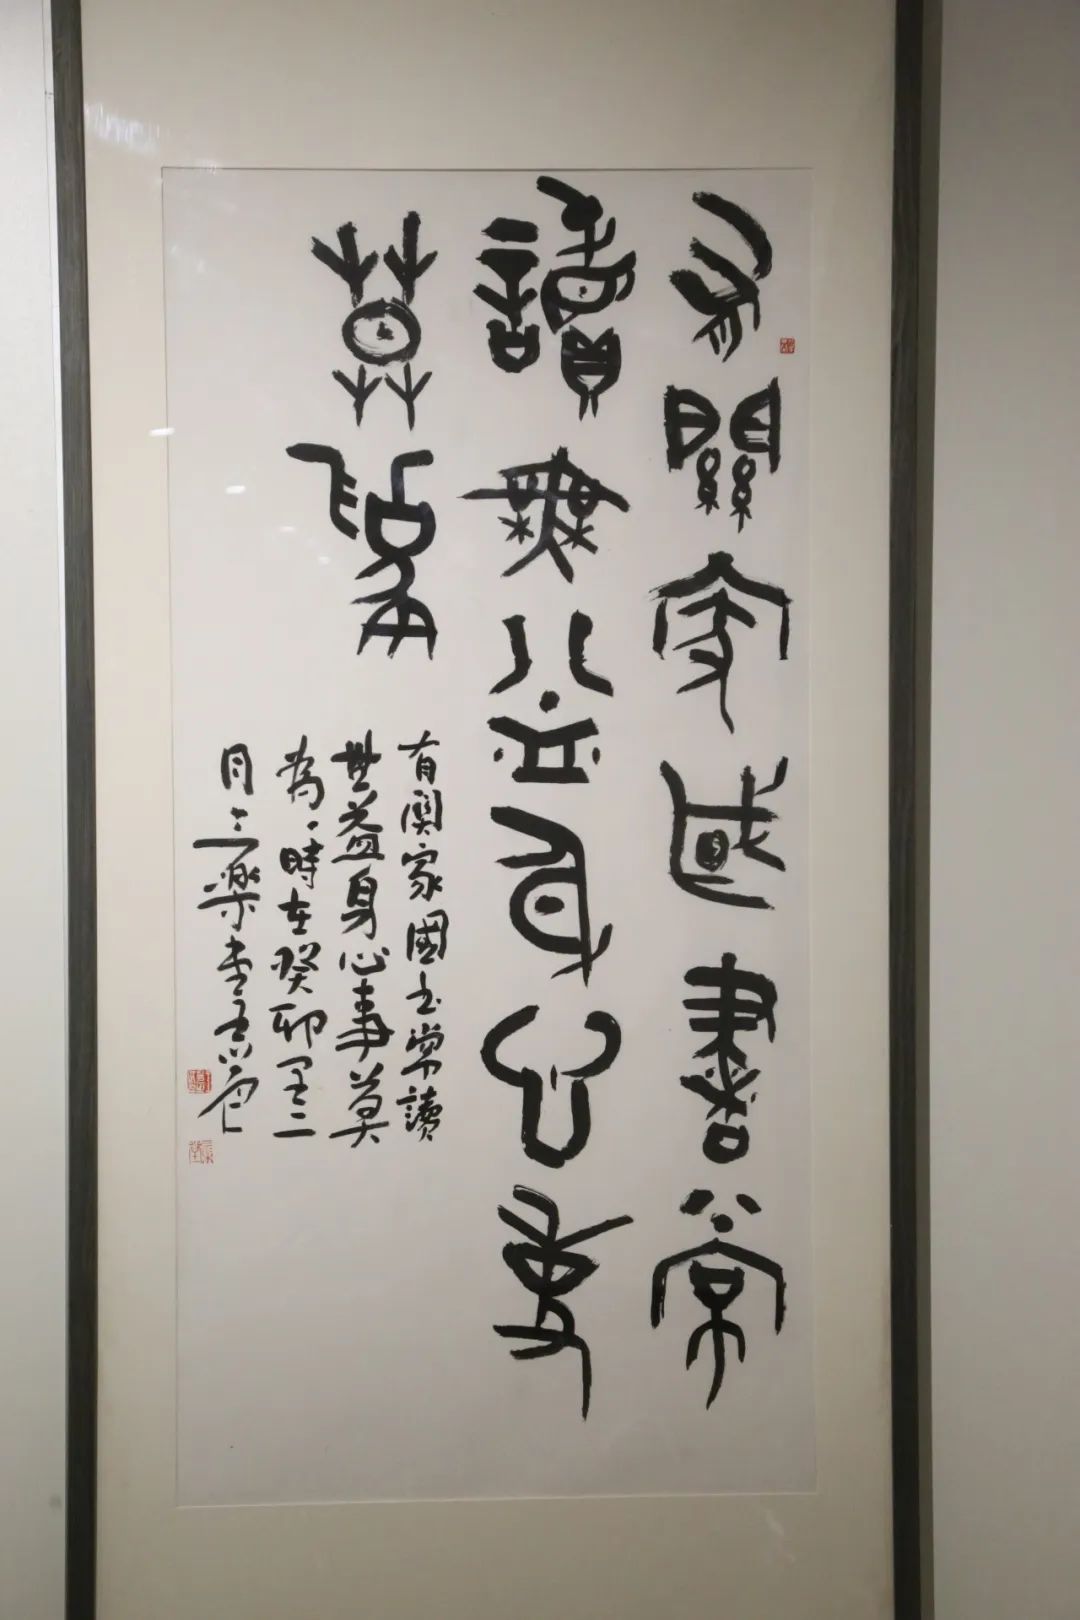 有關家國書常
讀無益身心事
莫為
有関家國书常讀
無益身心事莫
為時在癸卯閏二
月三樂堂